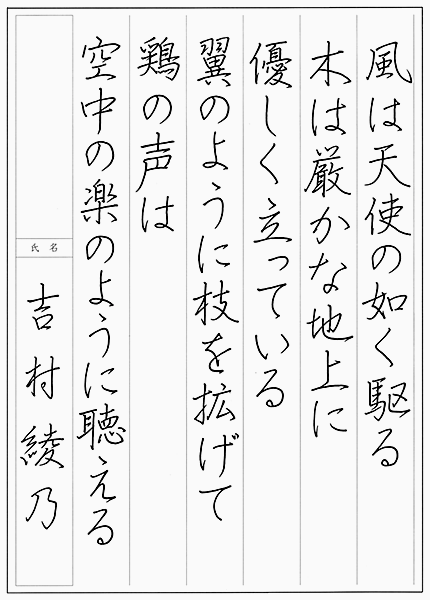 風は天使の如く駆る
木は厳かな地上に
優しく立っている
翼のように枝を拡げて
鶏の声は
空中の楽のように聴える
氏名
吉村綾乃